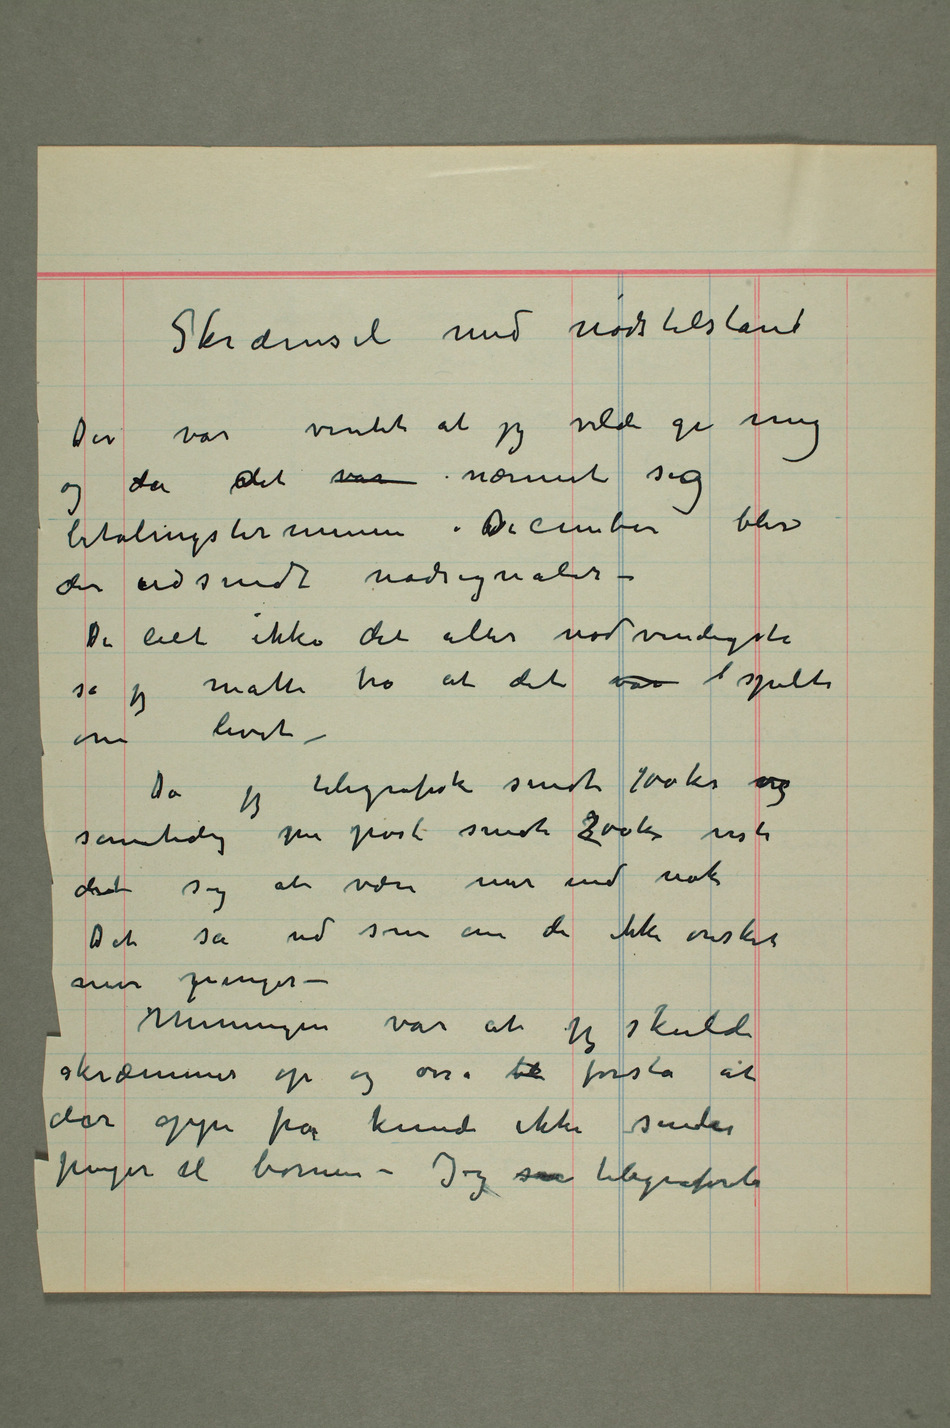 Skræmsel med nødstilstand
Der var ventet at jeg vilde gi mig
og da det var nærmet sig
betalingsterminen i December blev
der udsendt nødsignaler –
De led ikke det aller nødvendigste
så jeg måtte tro at det var spilte
om livet –
Da jeg telegrafisk sendte 100 kr og
samtidig per post sendte 200 kr viste
det sig at være mer end nok
Det så ud som om de ikke ønsket
mer penger –
Meningen var at jeg skulde
skræmmes op og forstå at
der oppe fra kunde ikke sendes
penger til børnene – Jeg telegraferte